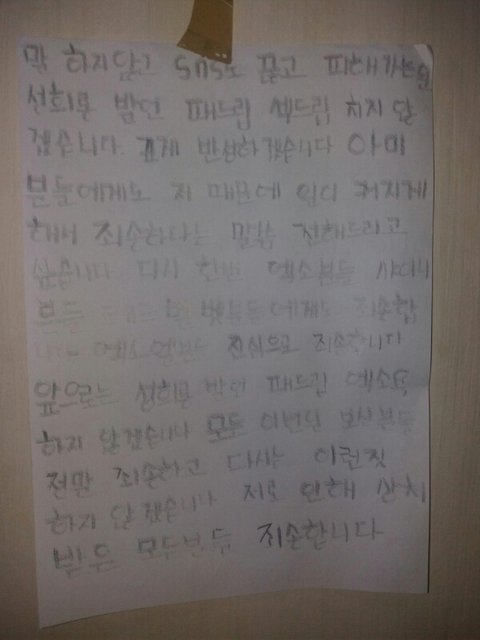 막 하지않고 SnS도 끊고 피해가는일
성희롱 발언 패드립 섹드립 치지 않
겠습니다 깊게 반성하겠습니다 아미
분들에게도 저 때문에 일이 커지게
해서 죄송하다는 말씀 전해드리고
싶습니다 다시 한번 엑소분들 샤이니
분들 분들에게도 죄송합
엑소엘분들 진심으로 죄송합니다
앞으로는 성희롱 발언 패드립
하지 않겠습니다 모든 이번일 보신분들
정말 죄송하고 다시는 이런짓
하지 않겠습니다 저로 인해 상처
받은 모두분들 죄송합니다